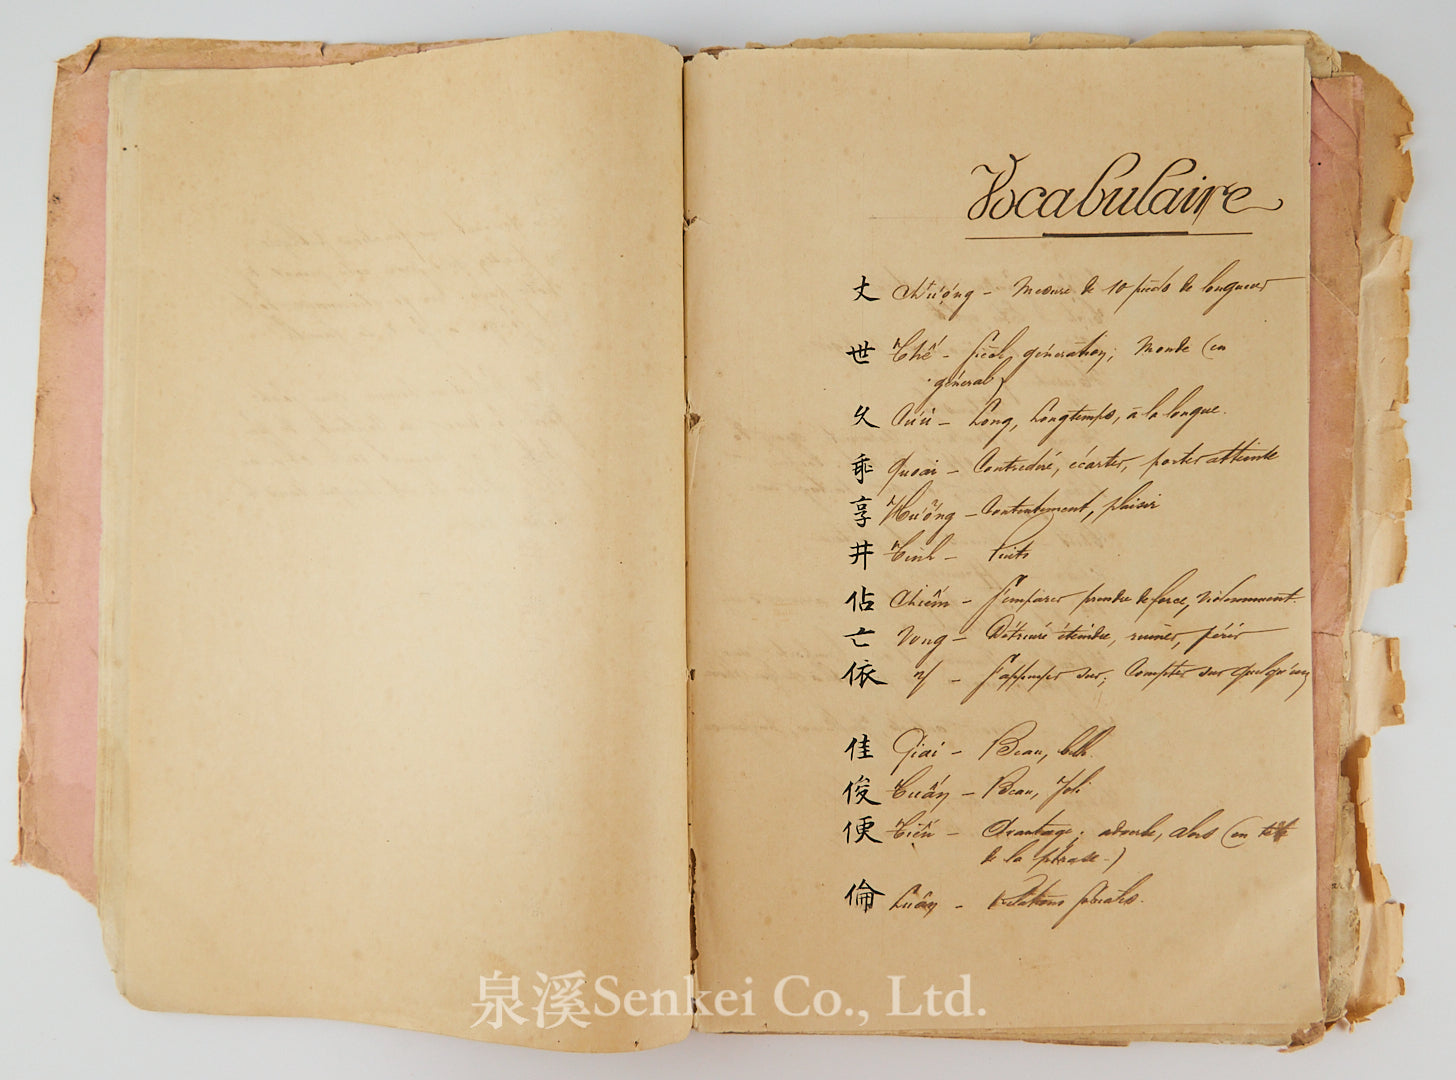 Vocabulaire
丈 Chượng – Mesure de 10 pieds de longueur
世 Thế – Siècle, génération; Monde (en
général)
久 Cửu – Long, Longtemps, à la longue.
乖 Quai – Contredire, écarter, porter atteinte
享 Hưởng – Contentement, plaisir
井 Tinh – Puits
佔 Chiếm – S'emparer prendre de force, violemment.
亡 Vong – Détruire éteindre, ruiner, périr
依 Y – S'appuyer sur; Compter sur quelqu'un
佳 Giai – Beau, belle.
俊 Tuấn – Beau, Joli
便 Tiện – Avantage; adverbe, alors (en tête
de la phrase.)
倫 Luân – Relations sociales.
泉溪Senkei Co., Ltd.